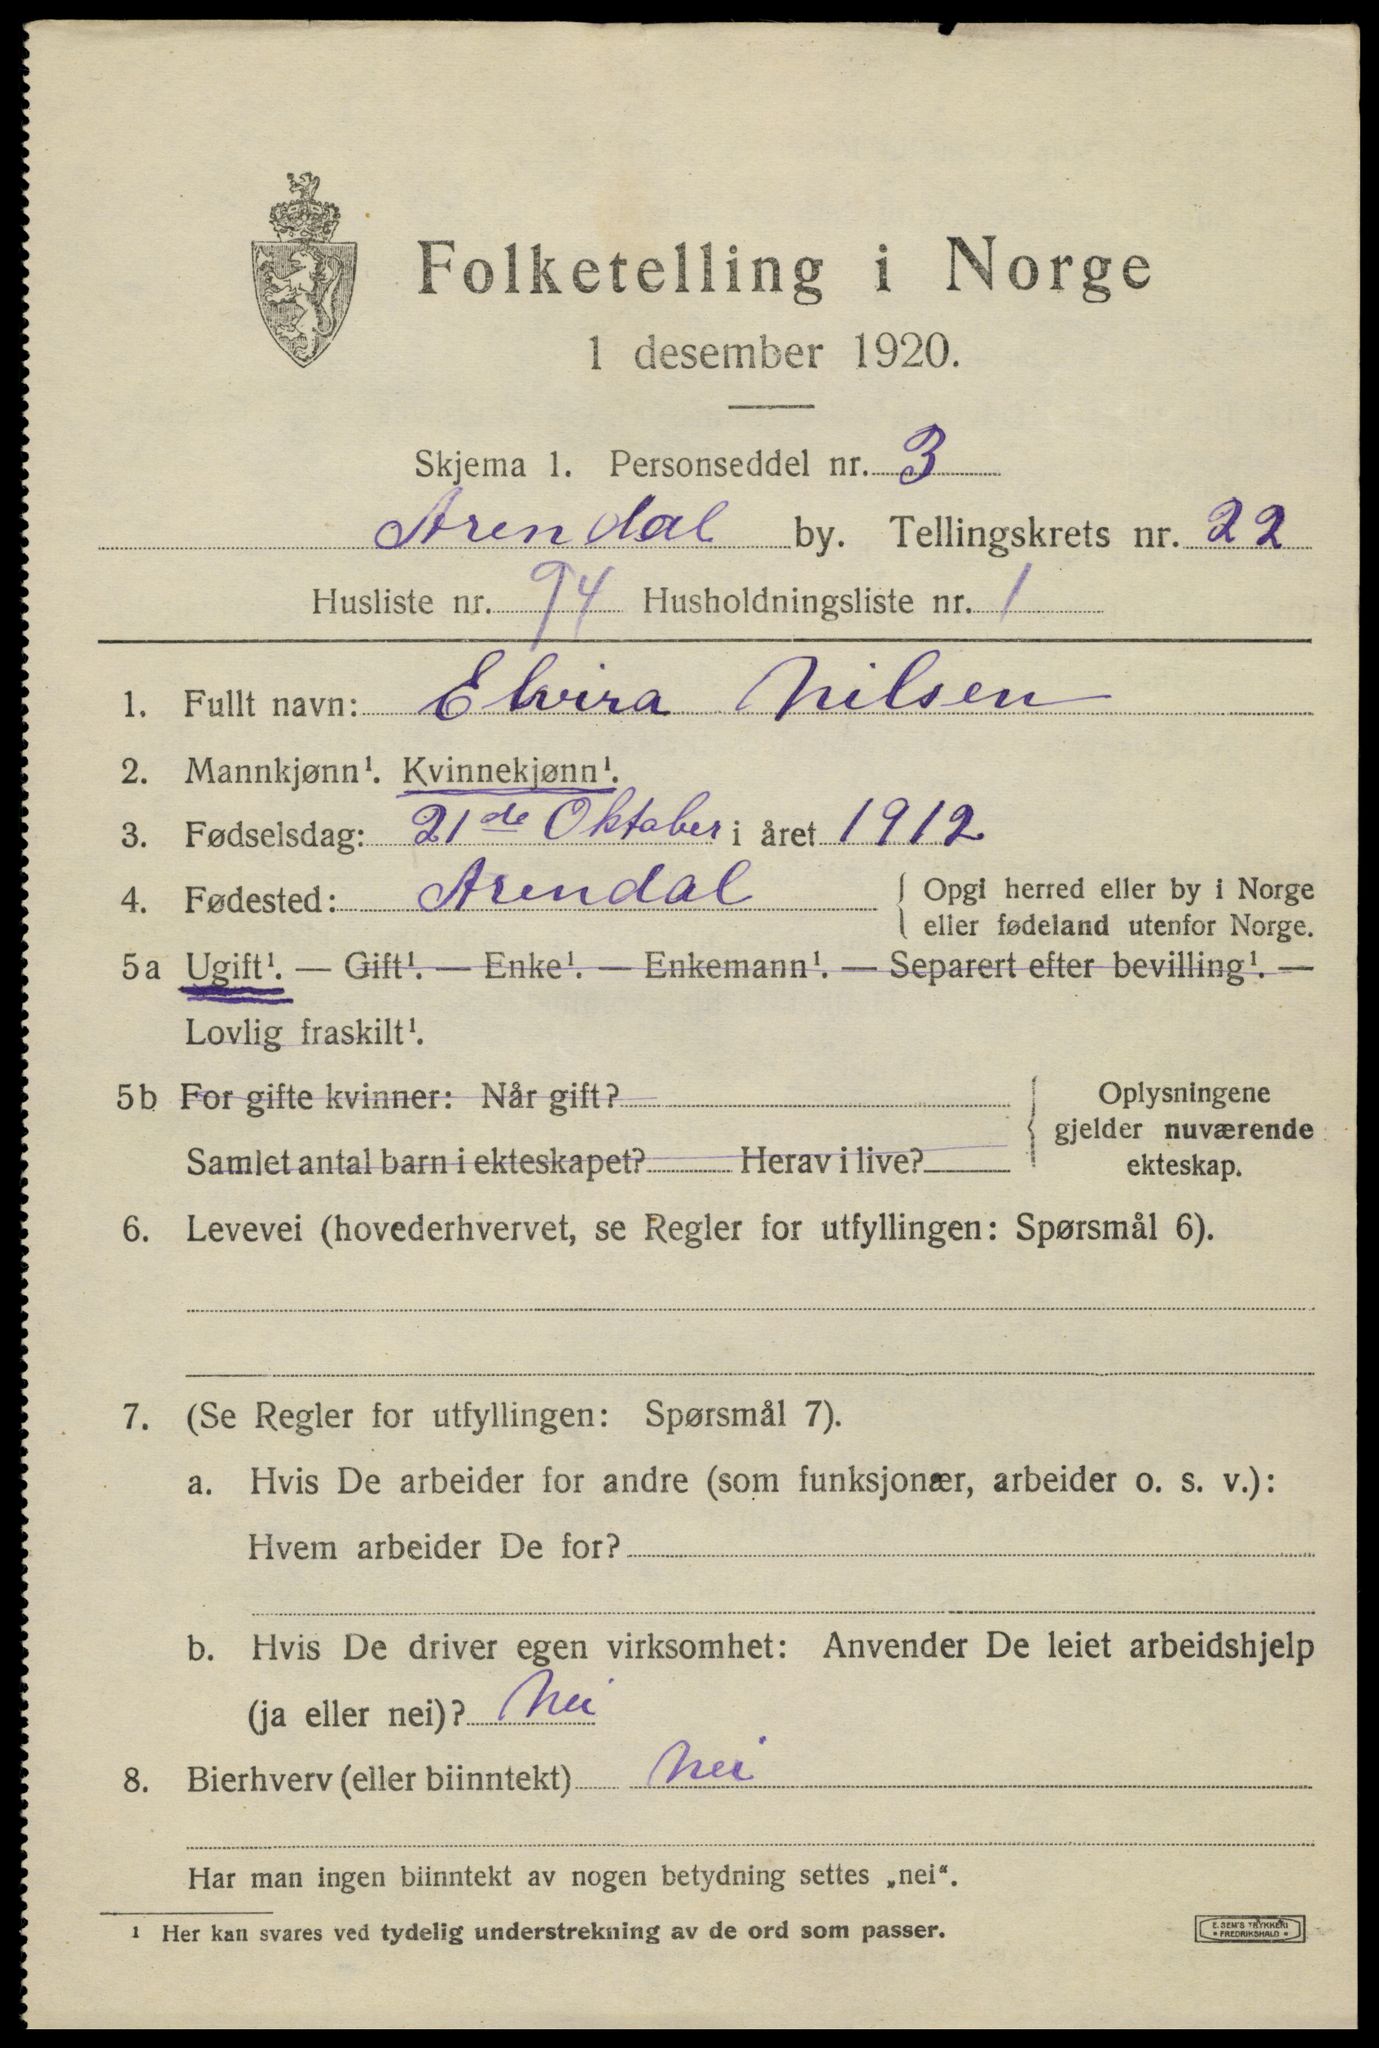 Folketelling i Norge
1 desember 1920.
Skjema 1. Personseddel nr. 3
Arendal by. Tellingskrets nr. 22
Husliste nr. 94 Husholdningsliste nr. 1
1. Fullt navn: Elvira Nilsen
2. Mannkjønn¹. Kvinnekjønn¹.
3. Fødselsdag: 21de Oktober i året 1912
4. Fødested: Arendal { Opgi herred eller by i Norge
eller fødeland utenfor Norge.
5a Ugift¹. — Gift¹. — Enke¹. — Enkemann¹. — Separert efter bevilling¹. —
Lovlig fraskilt¹.
5b For gifte kvinner: Når gift?
Samlet antal barn i ekteskapet? Herav i live?
Oplysningene
gjelder nuværende
ekteskap.
6. Levevei (hovederhvervet, se Regler for utfyllingen: Spørsmål 6).
7. (Se Regler for utfyllingen: Spørsmål 7).
a. Hvis De arbeider for andre (som funksjonær, arbeider o. s. v.):
Hvem arbeider De for?
b. Hvis De driver egen virksomhet: Anvender De leiet arbeidshjelp
(ja eller nei)? Nei
8. Bierhverv (eller biinntekt) Nei
Har man ingen biinntekt av nogen betydning settes „nei“.
¹ Her kan svares ved tydelig understrekning av de ord som passer.
E. SEM'S TRYKKERI
* FREDRIKSHALD *